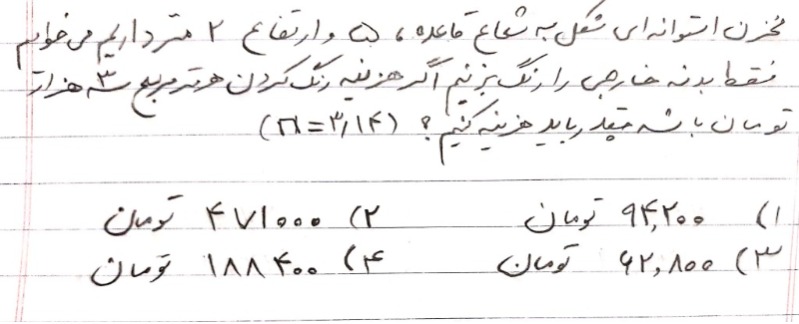 مخزن استوانه‌ای شکل به شعاع قاعده، ۵ و ارتفاع ۲ متر داریم می‌خواهیم
فقط بدنه خارجی را رنگ بزنیم اگر هزینه رنگ کردن هر متر مربع ۳ هزار
تومان باشد چقدر باید هزینه کنیم؟ (π=۳٫۱۴)
۱) ۹۴٫۲۰۰ تومان ۲) ۴۷۱۰۰۰ تومان
۳) ۶۲٫۸۰۰ تومان ۴) ۱۸۸۴۰۰ تومان